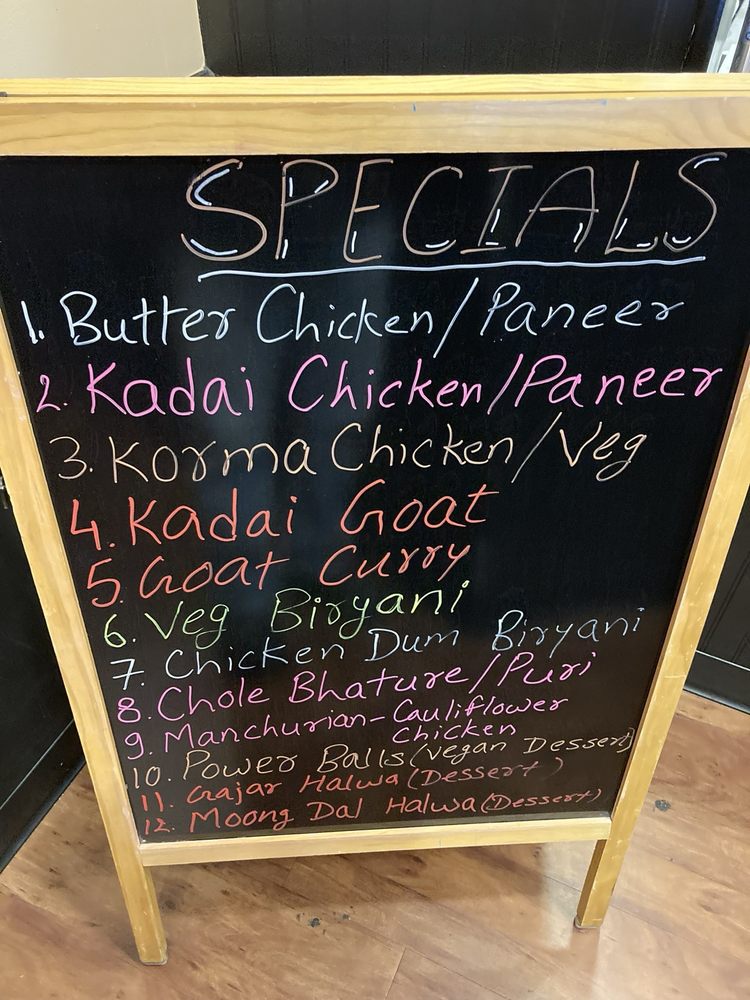 SPECIALS
1. Butter Chicken/Paneer
2. Kadai Chicken/Paneer
3. Korma Chicken/Veg
4. Kadai Goat
5. Goat Curry
6. Veg Biryani
7. Chicken Dum Biryani
8. Chole Bhature/Puri
9. Manchurian-Cauliflower
Chicken
10. Power Balls (Vegan Dessert)
11. Gajar Halwa (Dessert)
12. Moong Dal Halwa (Dessert)